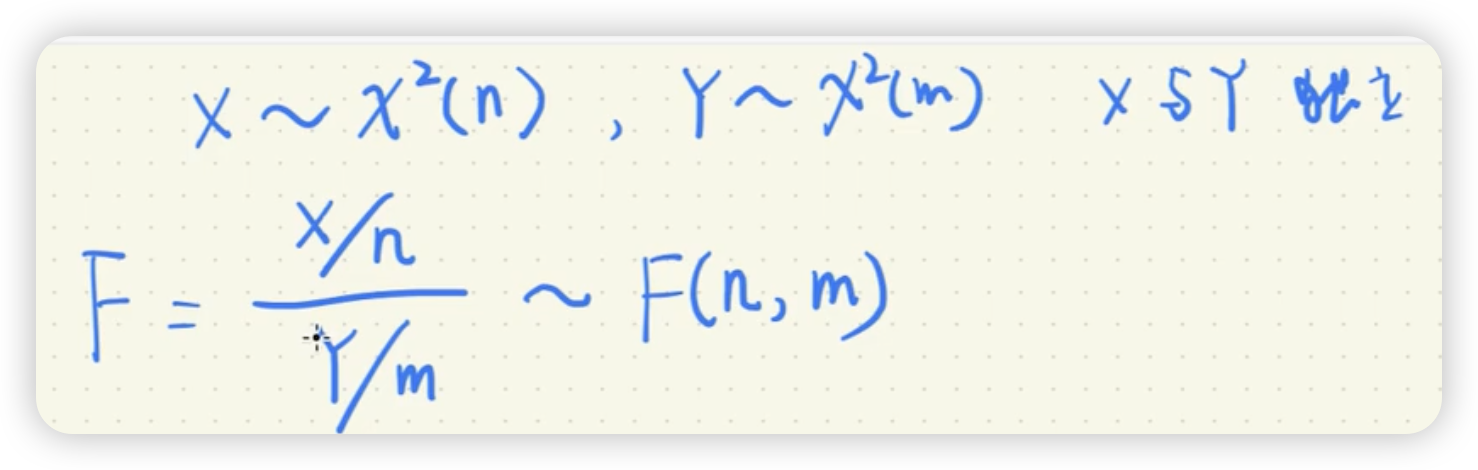 X ~ χ²(n) , Y ~ χ²(m) X 与 Y 独立
F = (X/n)/(Y/m) ~ F(n, m)